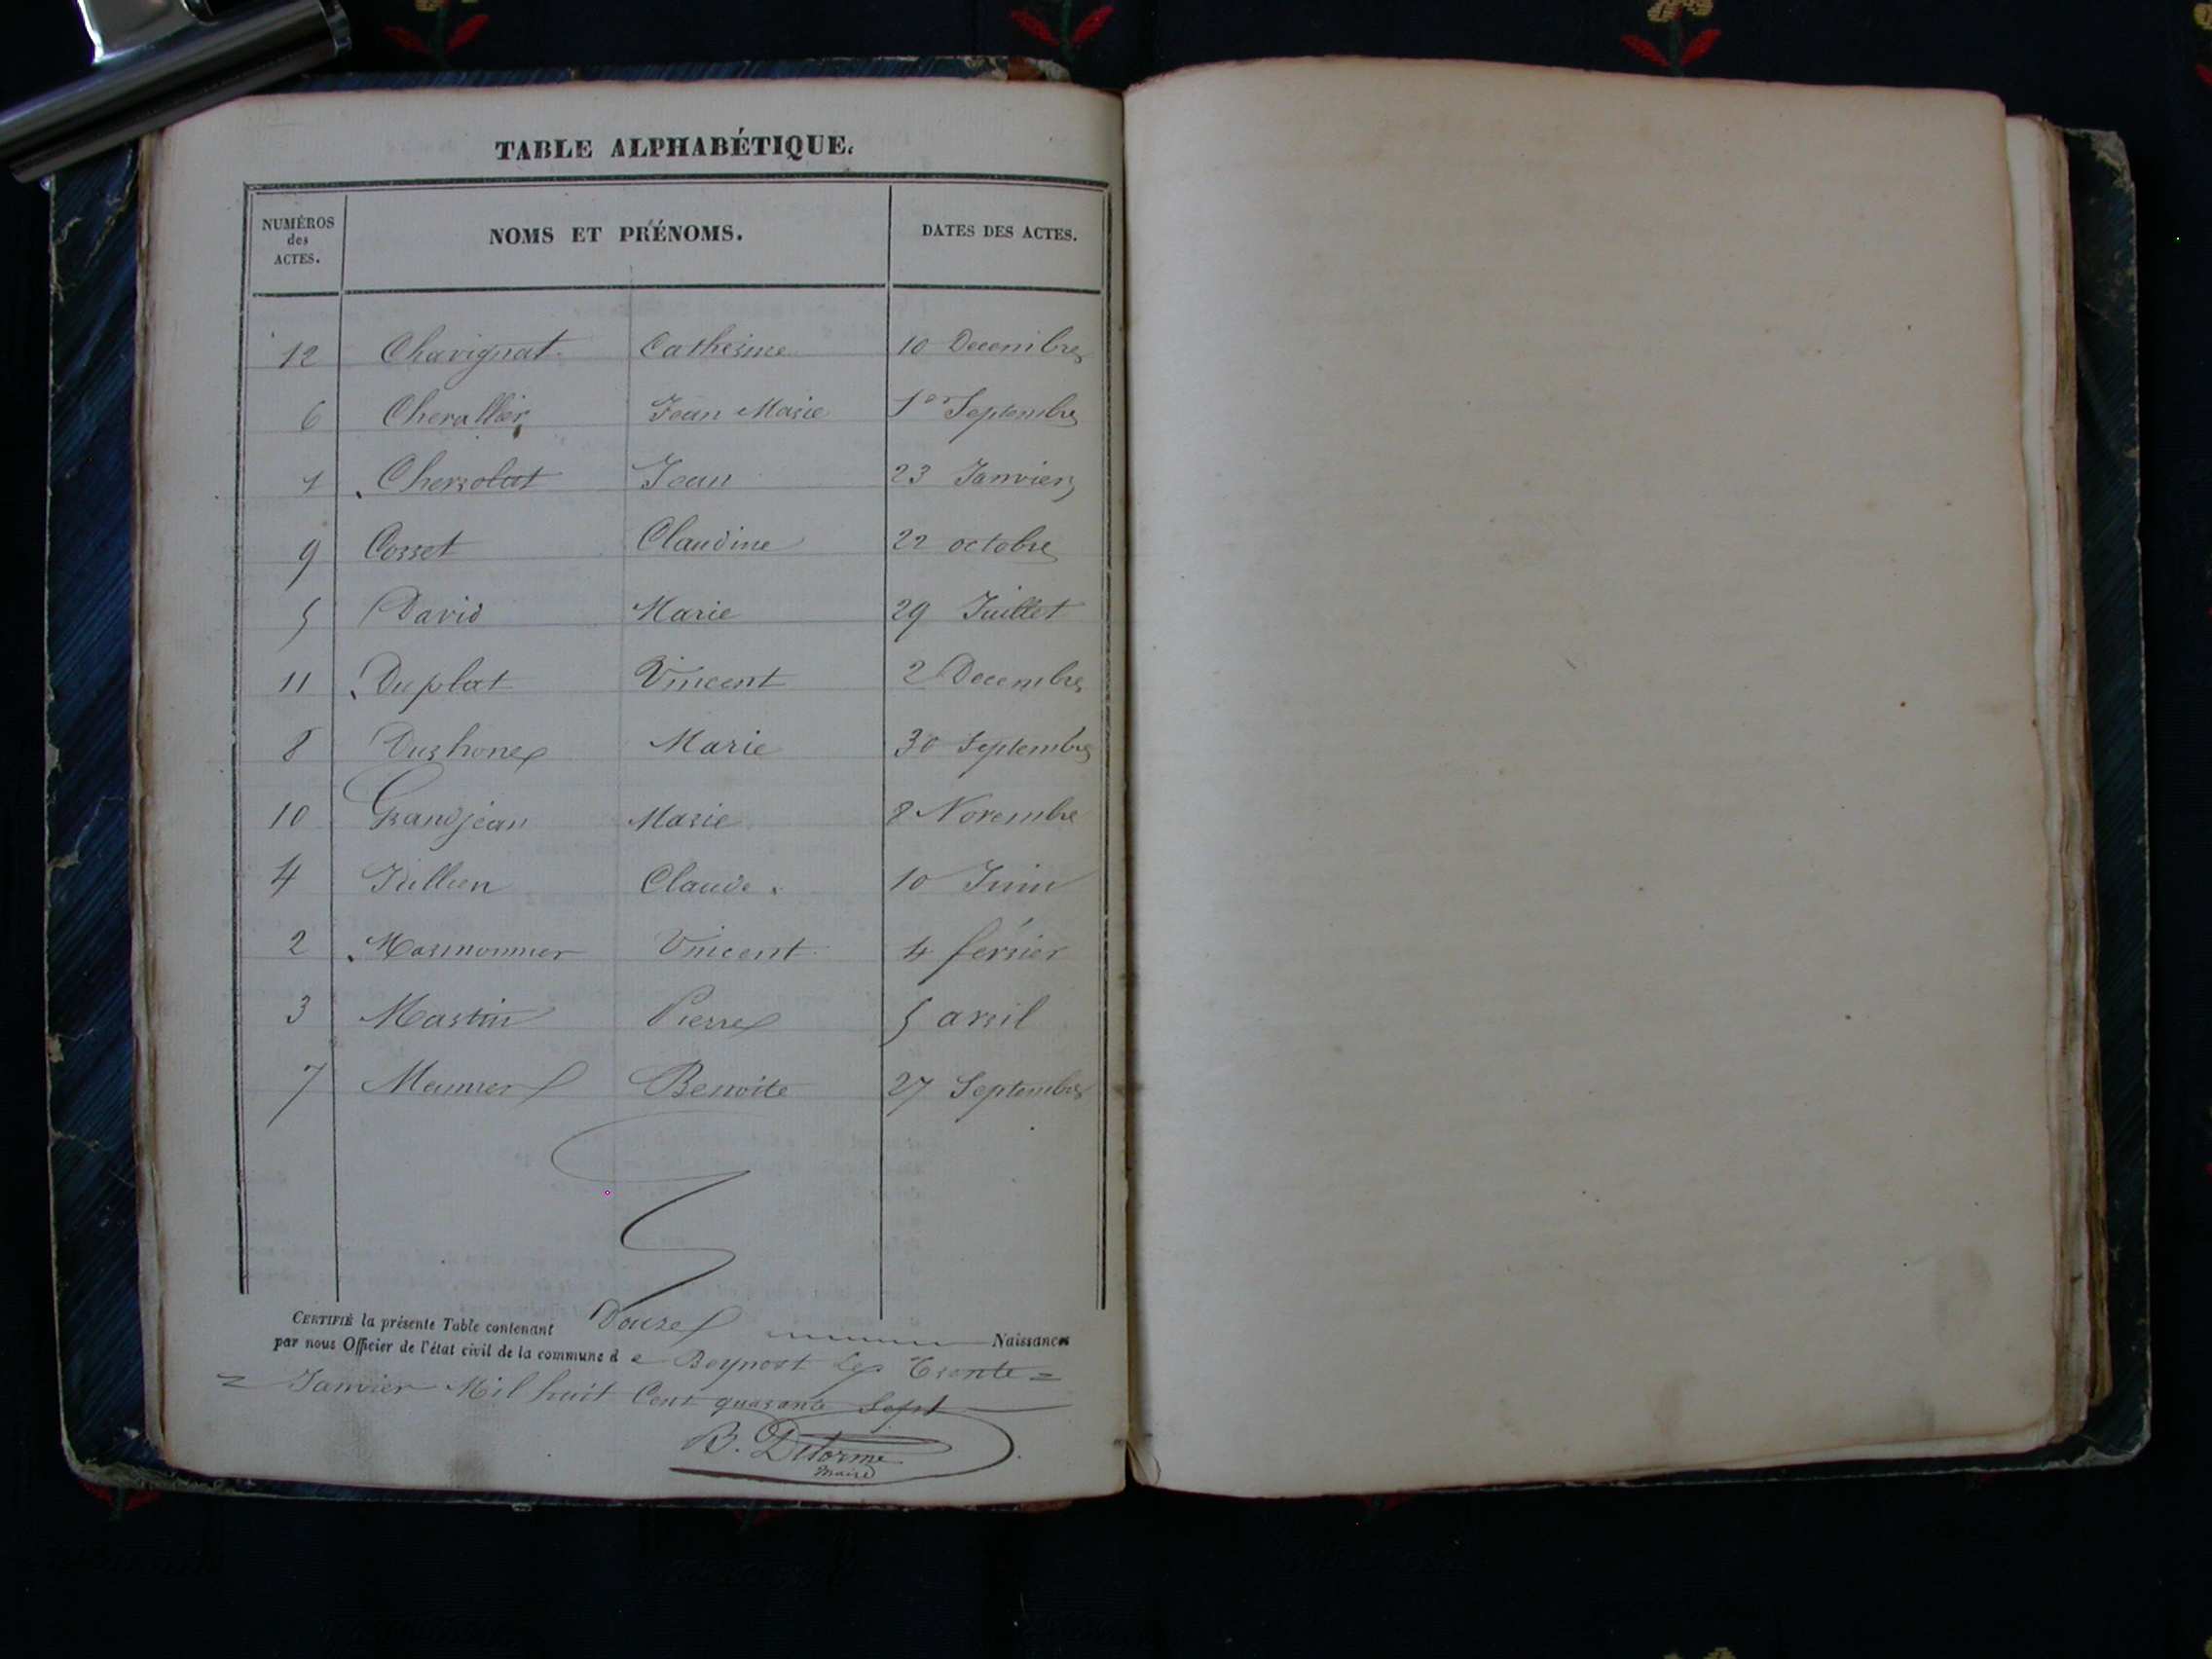 TABLE ALPHABÉTIQUE.
NUMÉROS des ACTES. NOMS ET PRÉNOMS. DATES DES ACTES.
12 Chavignat Catherine 10 Decembre
6 Chevallier Jean Marie 1er Septembre
1 Chersolat Jean 23 Janvier
9 Cosset Claudine 22 octobre
5 David Marie 29 Juillet
11 Duplat Vincent 2 Decembre
8 Marie 30 Septembre
10 Grandjean Marie 8 Novembre
4 Jullien Claude 10 Juin
2 Marmonnier Vincent 4 février
3 Martin Pierre 5 avril
7 Meunier Benoite 27 Septembre
CERTIFIÉ la présente Table contenant Douze Naissances
par nous Officier de l'état civil de la commune de Beynost Le Trente =
= Janvier Mil huit Cent quarante Sept
B. Delorme
maire